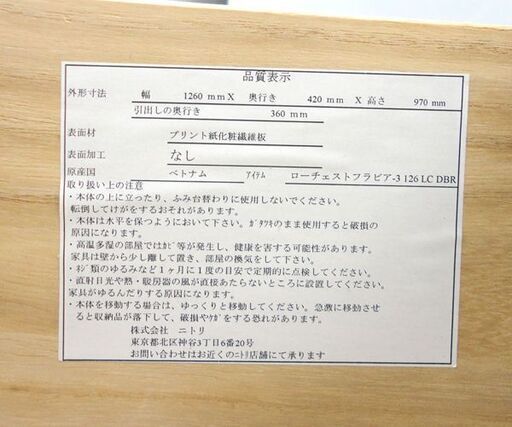 品質表示
外形寸法 幅 1260 mm X 奥行き 420 mm X 高さ 970 mm
引出しの奥行き 360 mm
表面材 プリント紙化粧繊維板
表面加工 なし
原産国 ベトナム ｱｲﾃﾑ ローチェストフラビア-3 126 LC DBR
取り扱い上の注意
・本体の上に立ったり、ふみ台替わりに使用しないでください。
転倒してけがをするおそれがあります。
・本体は水平を保つようにおいて下さい。ｶﾞﾀﾂｷのまま使用すると破損の
原因になります。
・高温多湿の部屋ではｶﾋﾞ等が発生し、健康を害する可能性があります。
家具は壁から少し離して置き、部屋の換気をして下さい。
・ﾈｼﾞ類のゆるみなど１ヶ月に１度の目安で定期的に点検してください。
・直射日光や熱・暖房器の風が直接あたらないところに設置してください。
家具がゆるんだりする原因になります。
・本体を移動する場合は、ゆっくりと移動してください。急激に移動させ
ると収納品が落下して、破損やｹｶﾞをする恐れがあります。
株式会社 ニトリ
東京都北区神谷3丁目6番20号
お問い合わせはお近くのﾆﾄﾘ店舗にて承ります